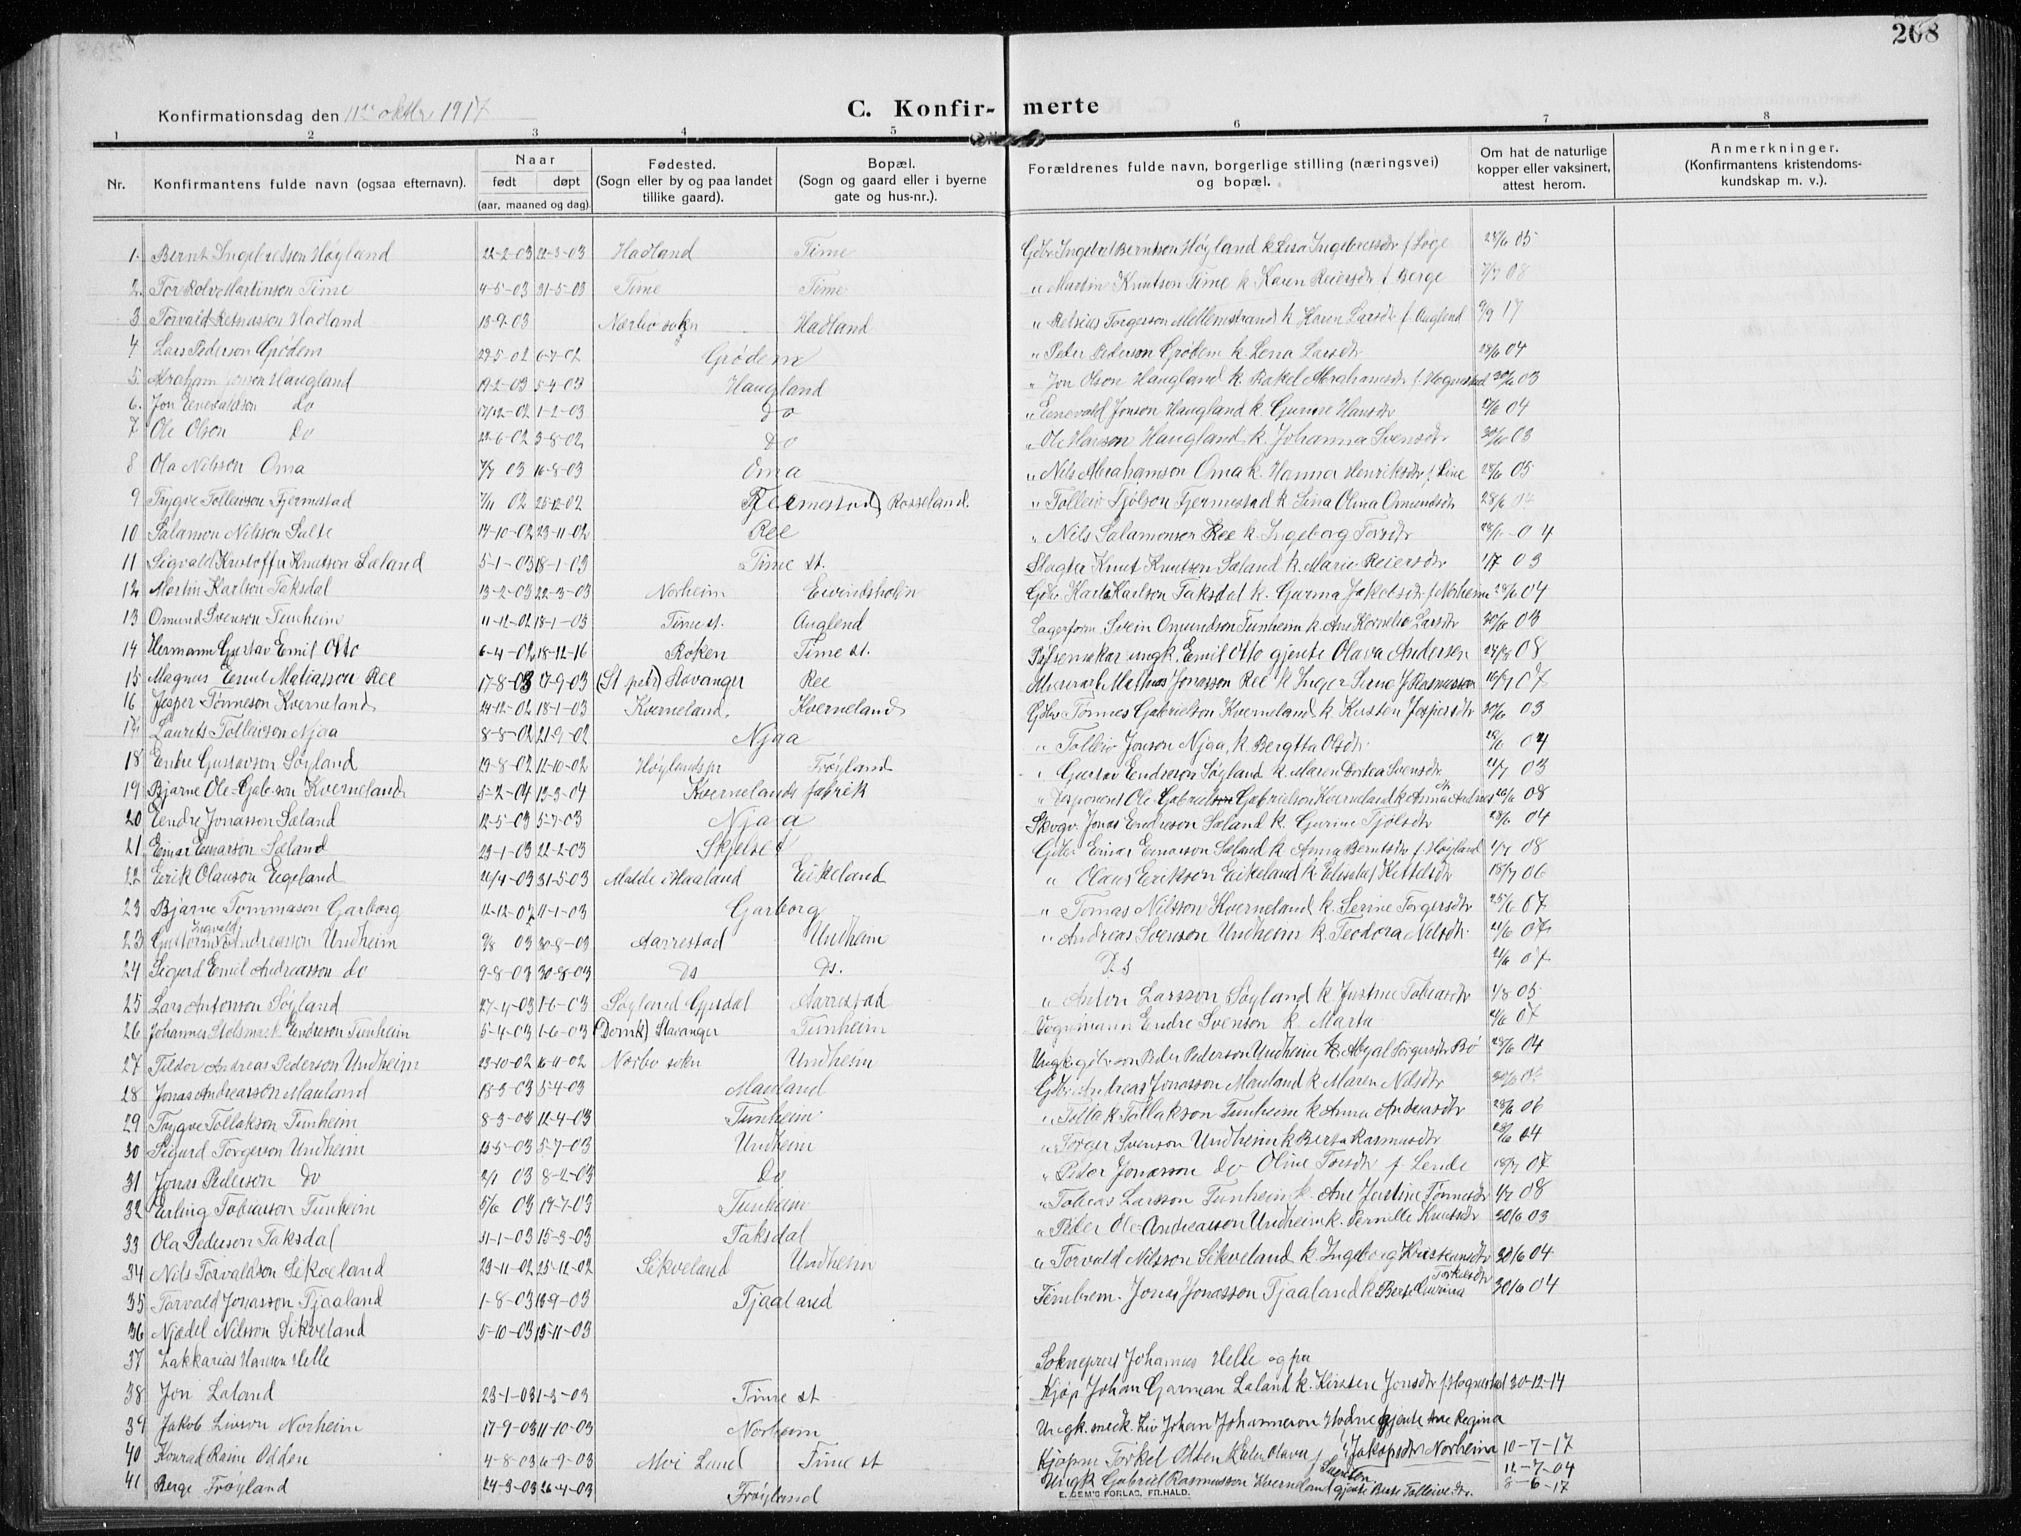 208
Konfirmationsdag den 11te oktbr 1917
C. Konfir- merte
1 2 3 4 5 6 7 8
Nr. Konfirmantens fulde navn (ogsaa efternavn). Naar født døpt (aar, maaned og dag). Fødested. (Sogn eller by og paa landet tillike gaard). Bopæl. (Sogn og gaard eller i byerne gate og hus-nr.). Forældrenes fulde navn, borgerlige stilling (næringsvei) og bopæl. Om hat de naturlige kopper eller vaksinert, attest herom. Anmerkninger. (Konfirmantens kristendoms- kundskap m. v.).
1. Bernt Ingebretson Høyland 22-2-03 22-3-03 Hadland Time Gbr. Ingebret Berntson Høyland k Lisa Ingebretsdr f Løge 05
2. Tor Rolv Martinson Time 4-5-03 31-5-03 Time Time " Martin Knutson Time k Karen Reiersdr f Berge 7/7 08
3 Torvald Hadland 18-9-03 Nærbø sokn Hadland " Torgerson Mellemstrand k Karen Larsdr f Auglend 17
4 Lars Pederson Grødem 29-5-02 6-7-02 Grødem " Peter Pederson Grødem k. Lena Larsdr 28/6 04
5. Abraham Jonson Haugland 19-2-03 5-4-03 Haugland " Jon Olson Haugland k. Rakel Abrahamsdr f. Hognestad 30/6 03
6. Jon Enevaldson do 17/12-02 1-2-03 do " Enevald Jonson Haugland k. Gurine Hansdr 04
7 Ole Olson Do 22-6-02 3-8-02 Do " Ole Hanson Haugland k. Johanna Svensdr 03
8 Ola Nilsson Oma 7/7 03 16-8-03 Oma " Nils Abrahamson Oma k. Hanna Henriksdr f Line 28/6 05
9 Trygve Tolleivson Fjermestad 7/11 02 25-12-02 Fjermestad Rosseland. " Tolleiv Tjølson Fjermestad k Lina Olina Omundsdr 28/6 04
10 Salamon Nilsson Salte 14-10-02 23-11-02 Ree " Nils Salamonsen Ree k Ingeborg Torsdr 04
11 Sigvald Kristoffer Knutson Sæland 5-1-03 18-1-03 Time st. Slagter Knut Knutson Sæland k. Marie Reiersdr 1/7 03
12 Martin Karlson Taksdal 13-2-03 22-3-03 Norheim Eivindsholen Gbr. Karl Karlson Taksdal k. Gurina Jakobsdr f Norheim 28/6 04
13 Omund Svenson Tunheim 11-12-02 18-1-03 Time st. Auglend Lagerform. Svein Omundson Tunheim k. Ane Kornelia Larsdr 30/6 03
14 Hermann Gustav Emil Otto 6-4-02 18-12-16 Røken Time st. ungk. Emil Otto gjente Olava Andersen 08
15 Magnus Emil Matiasson Ree 17-8-03 17-9-03 (St petri) Stavanger Ree Murerarb Mathias Jonasson Ree k Inger Serine J Rasmussen 16/7 07
16 Jesper Tønneson Kverneland 24-12-02 18-1-03 Kverneland. Kverneland Gbr. Tønnes Gabrielson Kverneland k. Kirsten Jespersdr 30/6 03
17 Laurits Tolleivson Njaa 8-8-02 21-9-02 Njaa " Tolleiv Jonson Njaa, k. Bergitta Olsdr 04
18 Endre Gustavson Søyland 29-8-02 12-10-02 Høylandspr Frøyland " Gustav Endreson Søyland k. Maren Dortea Svensdr 03
19 Bjarne Ole-Gab-son Kverneland 5-2-04 13-3-04 Kvernelands fabrik " Disponent Ole Gabrielson Gabrielson Kverneland k Anna 08
20 Endre Jonasson Sæland 12-5-03 5-7-03 Njaa Skogv. Jonas Endreson Sæland k. Gurine Tjølsdr 28/6 04
21 Einar Einarson Sæland 23-1-03 22-2-03 Gbr Einar Einarson Sæland k Anna Berntsdr f Høyland 1/7 08
22 Erik Olauson Eigeland 21/4-03 31-5-03 Malde i Haaland Eikeland " Olaus Erikson Eikeland k Elisabet Kittelsdr 06
23 Bjarne Tommason Garborg 12-12-02 11-1-03 Garborg " Tomas Nilsson Kverneland k. Serine Torgersdr 25/6 07
23 Guttorm Ingvald Andreasson Undheim 9/8 03 30-8-03 Aarrestad Undheim " Andreas Svenson Undheim k. Teodora Nilsdr 21/6 07
24 Sigurd Emil Andreasson do 9-8-03 30-8-03 Do Do. D.s 21/6 07
25 Lars Antonson Søyland 27-4-03 1-6-03 Søyland Gjesdal Aarrestad " Anton Larsson Søyland k Justine Tobiasdr 4/8 05
26 Johannes Holsmark Endreson Tunheim 5-4-03 1-6-03 (Domk) Stavanger Tunheim Vognmann Endre Svenson k. Marta 07
27 Tildor Andreas Pederson Undheim 23-10-02 16-11-02 Nærbø sokn Undheim Ungk. gbr. son Peder Pederson Undheim k Abgal Torgersdr Bø 28/6 04
28 Jonas Andreasson Mauland 18-3-03 5-4-03 Mauland Gbr. Andreas Jonasson Mauland k Maren Nilsdr 03
29 Trygve Tollakson Tunheim 8-3-03 12-4-03 Tunheim. " Tollak Tollakson Tunheim k Anna Andreasdr 28/6 06
30 Sigurd Torgerson Undheim 13-5-03 5-7-03 Undheim " Torger Svenson Undheim k Berta Rasmusdr 04
31 Jonas Pederson Do 2/1 03 8-2-03 Do " Peter Jonasson do Oline Torsdr f. Lende 18/7 07
32 Erling Tobiasson Tunheim 5/6 03 19-7-03 Tunheim " Tobias Larsson Tunheim k. Ane Justine Tønnesdr 1/7 08
33 Ola Pederson Taksdal 31-1-03 15-3-03 Taksdal " Peder Ole Andreasson Undheim k. Pernille Knutsdr 30/6 03
34 Nils Torvaldson Sikveland 23-11-02 25-12-02 Sikveland Undheim " Torvald Nilsson Sikveland k Ingeborg Kristiansdr 30/6 04
35 Torvald Jonasson Tjaaland 1-8-03 13-9-03 Tjaaland Tømbrem. Jonas Jonasson Tjaaland k Berte Gurina Torkelsdr 30/6 04
36 Njædel Nilsson Sikveland 5-10-03 15-11-03
37 Zakkarias Hansen Helle Sokneprest Johannes Helle og fru
38 Jon Laland 23-1-03 1-3-03 Time st Kjøp Johan Garman Laland k. Kirsten Jonsdr f Hognestad 30-12-14
39 Jakob Livson Norheim 17-9-03 11-10-03 Norheim Ungk. smed. Liv Johan Johanneson Hodne gjente Ane Regina Jakopsdr Norheim 10-7-17
40 Konrad Reim Odden 4-8-03 6-9-03 Moi Lund Time st Kjøpm Torkel Odden k Elen Olava f Svendsen 12-7-04
41 Berge Frøyland 24-3-03 26-4-03 Frøyland Ungk Gabriel Rasmusson Kverneland gjente Berte Tolleivsdr. 8-6-17
E. SEM'S FORLAG, FR.HALD.